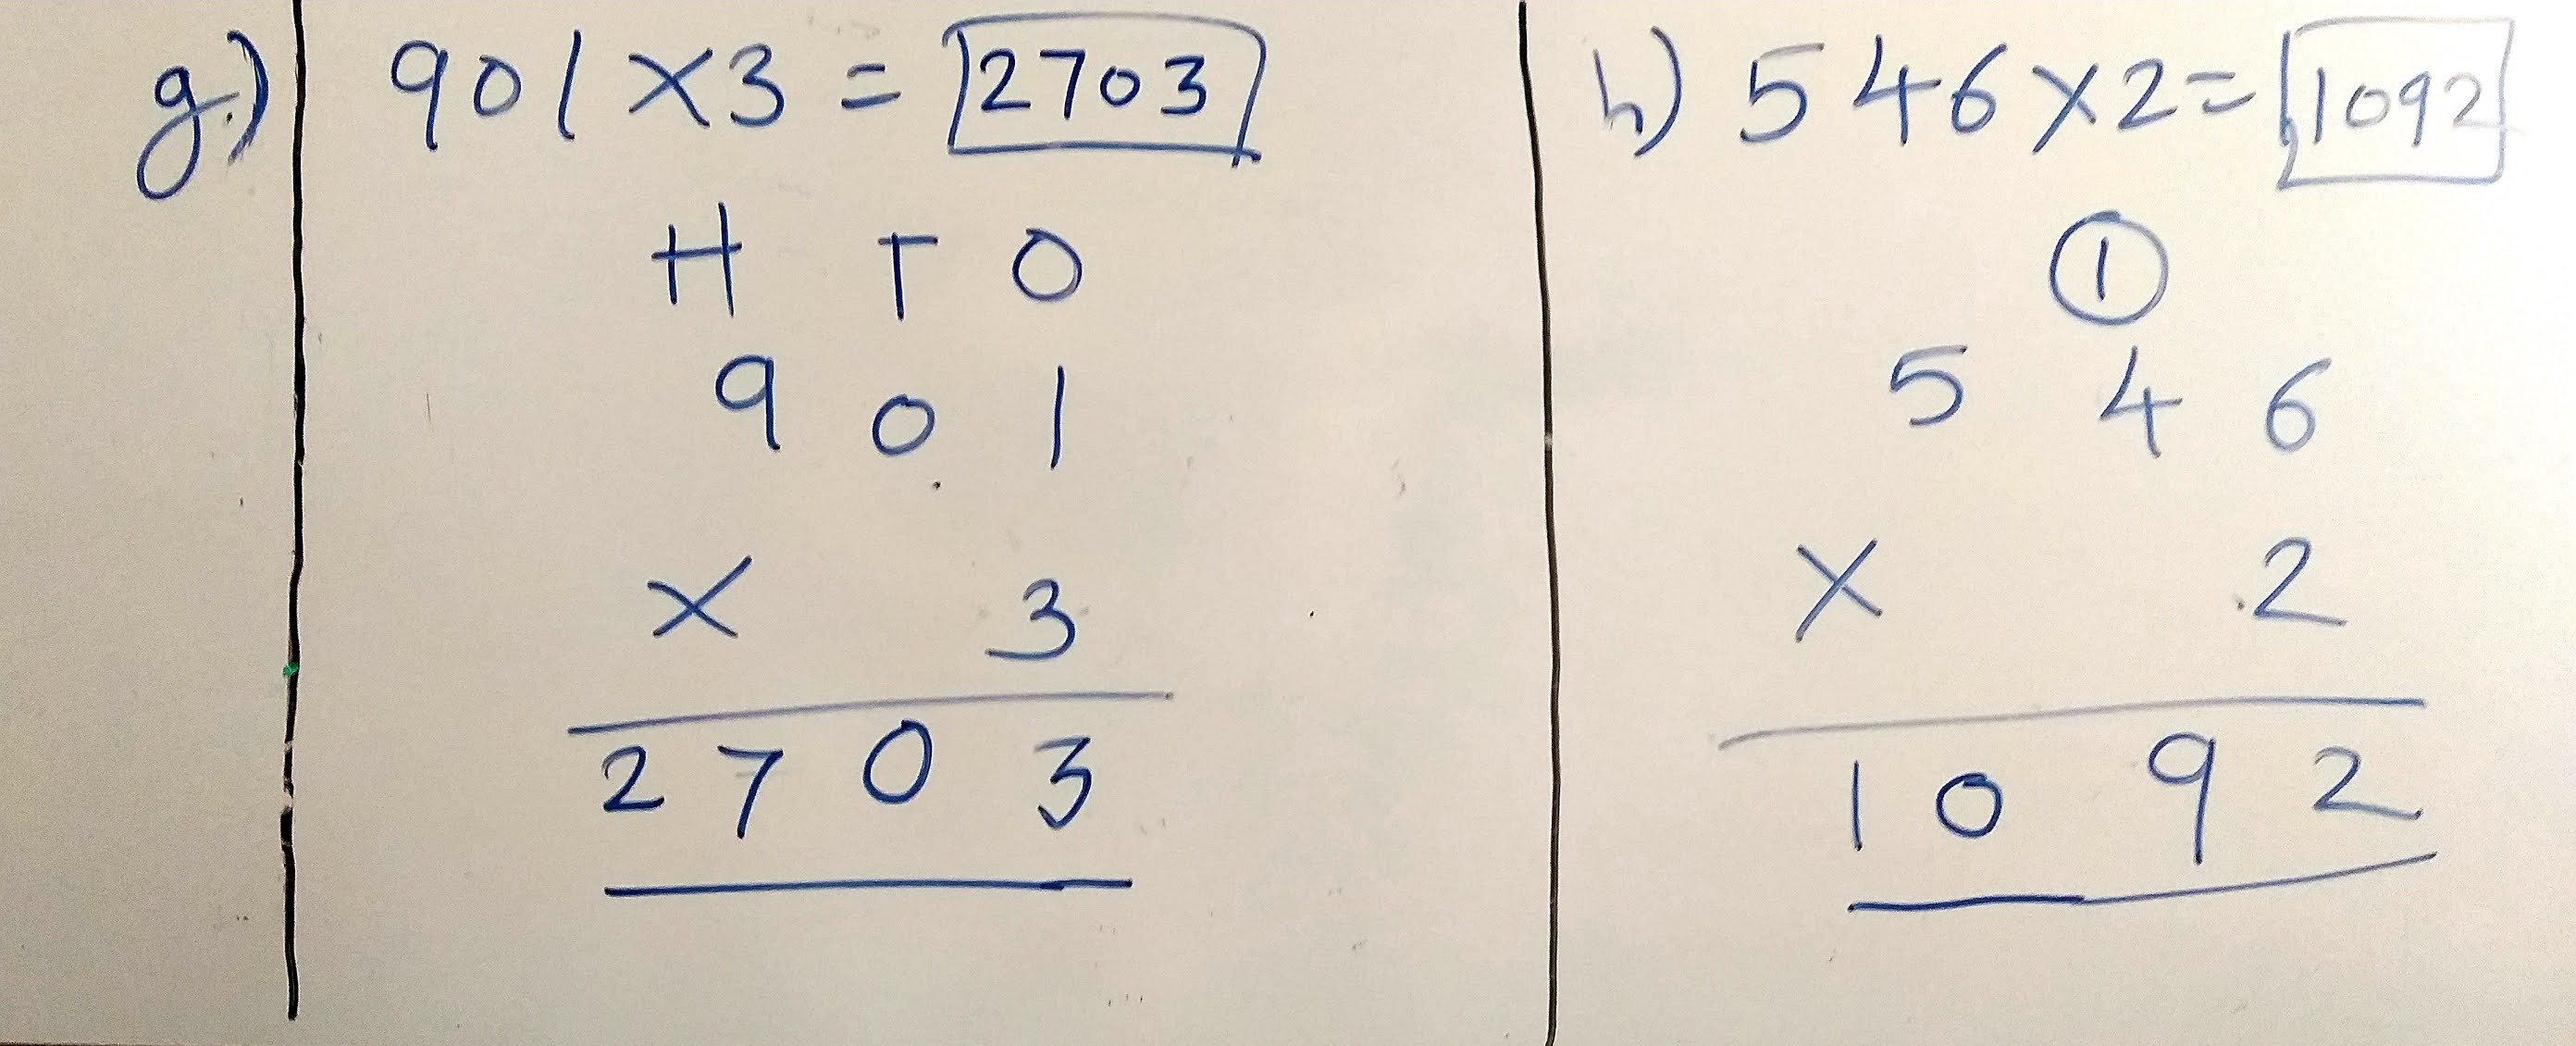 g.) 901 X3 = 2703
H T O
9 0 1
X 3
2 7 0 3
h) 546 X2= 1092
1
5 4 6
X 2
1 0 9 2